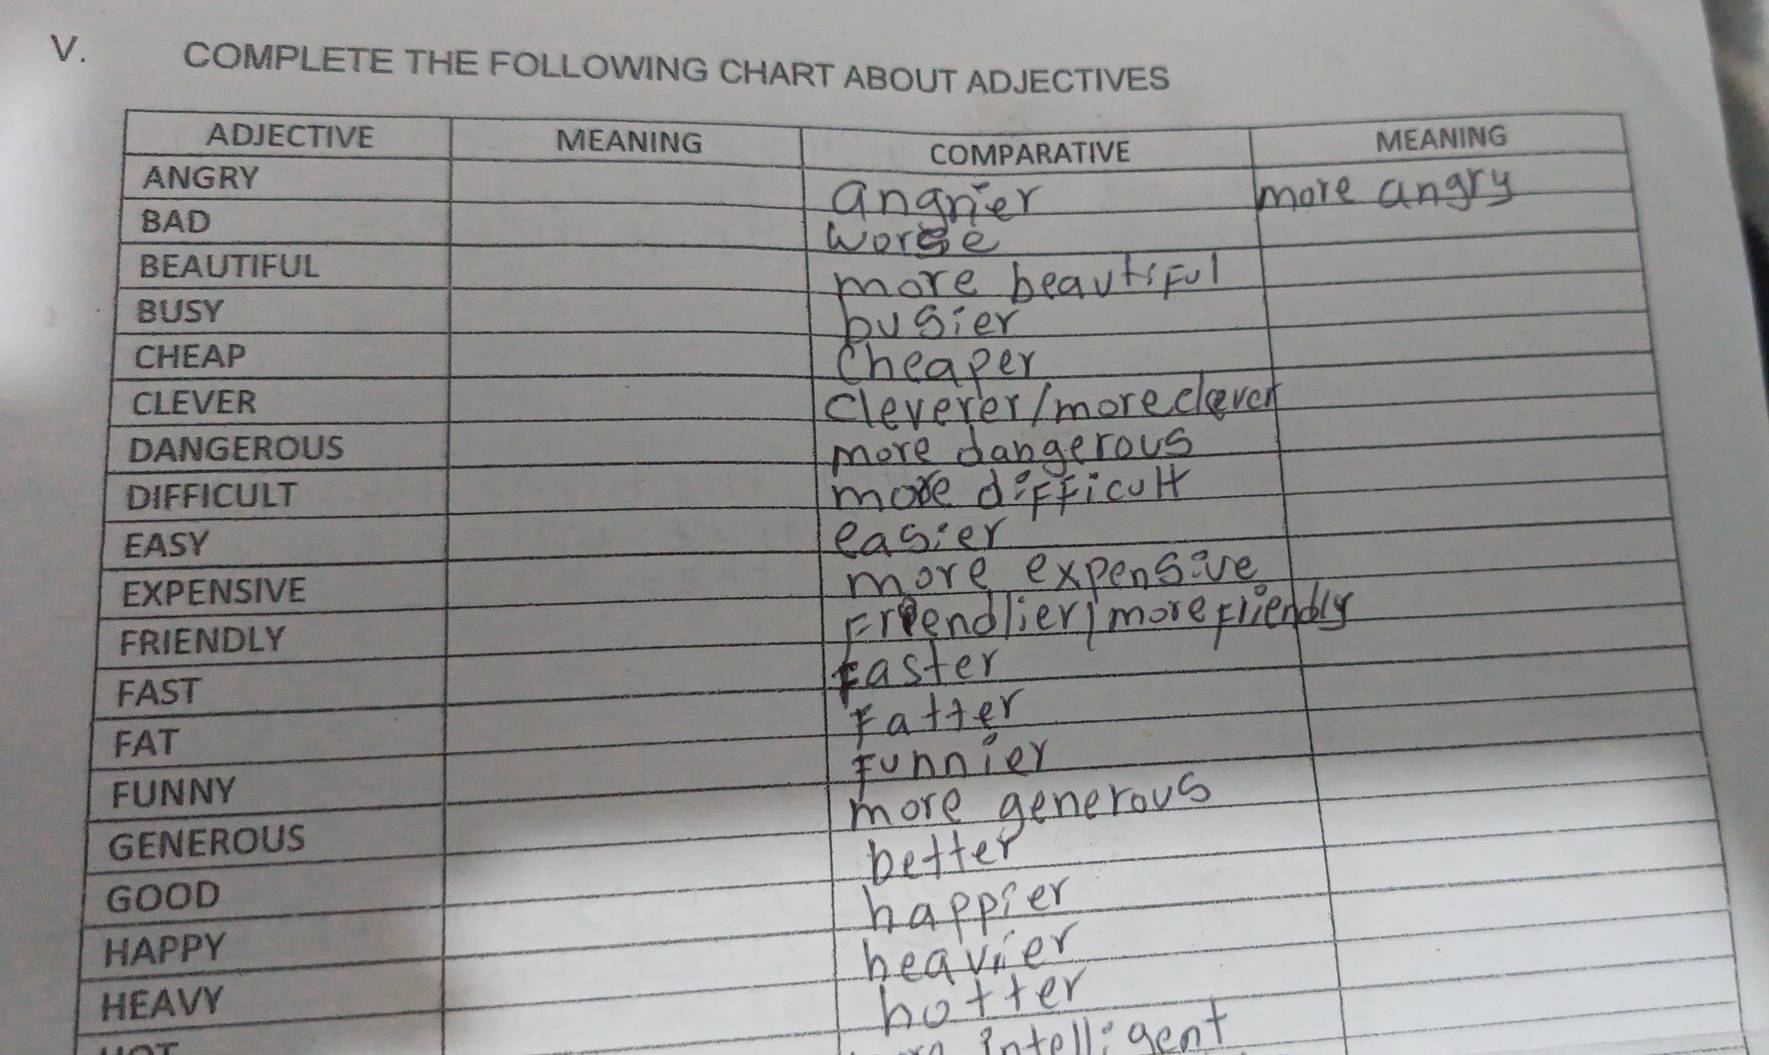 V. COMPLETE THE FOLLOWING CHART ABOUT ADJECTIVES
ADJECTIVE MEANING COMPARATIVE MEANING
ANGRY angrier more angry
BAD worse
BEAUTIFUL more beautiful
BUSY busier
CHEAP cheaper
CLEVER cleverer/more clever
DANGEROUS more dangerous
DIFFICULT more difficult
EASY easier
EXPENSIVE more expensive
FRIENDLY Friendlier/more friendly
FAST Faster
FAT Fatter
FUNNY Funnier
GENEROUS more generous
GOOD better
HAPPY happier
HEAVY heavier
HOT hotter
intelligent